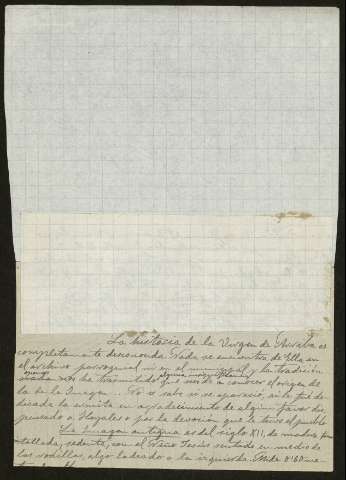 La historia de la Virgen de Arriba es
completamente desconocida. Nada se encontró de Ella en
el archivo parroquial ni en el municipal y la tradición
nos ha transmitido que nos dé a conocer el origen de
la bella Imagen. No se sabe si se apareció, si le fué de-
dicada la ermita en agradecimiento de algún favor dis-
pensado a Hoyales o por la devoción que le tuvo el pueblo
La Imagen antigua es del siglo XII, de madera, pin-
tallada, sedente, con el Niño Jesús sentado en medio de
las rodillas, algo ladeado a la izquierda. Mide 0'60 me-